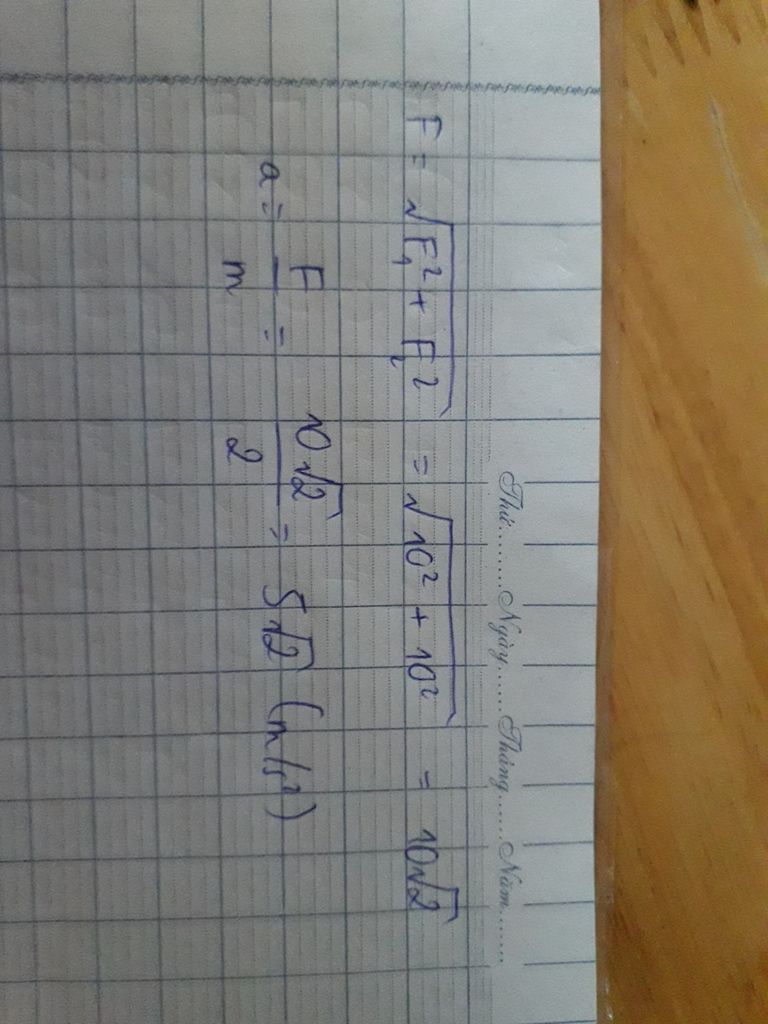 Thứ........Ngày.......Tháng.......Năm.......
F = √(F₁² + F₂²) = √(10² + 10²) = 10√2
a = F/m = 10√2/2 = 5√2 (m/s²)